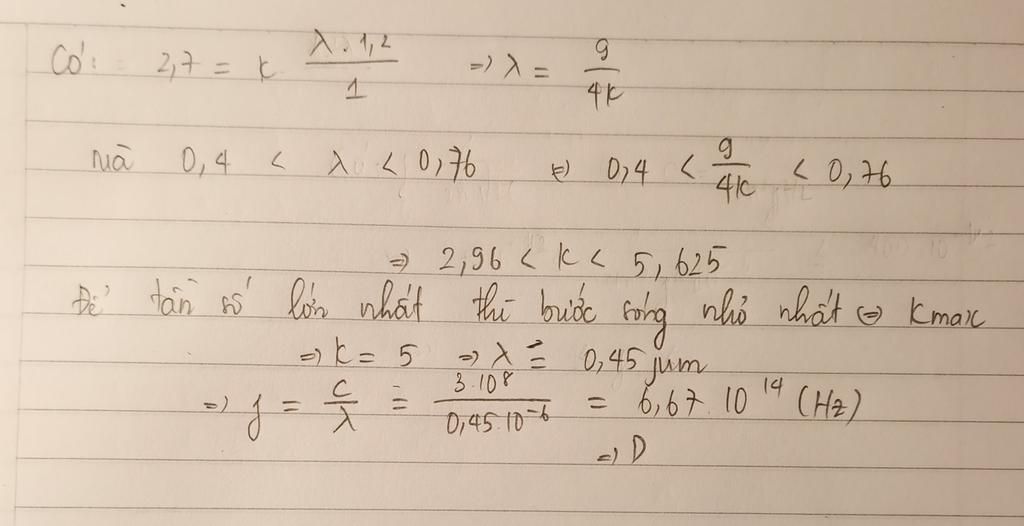 Có: 2,7 = k \frac{λ.1,2}{1} => λ = \frac{9}{4k}
mà 0,4 < λ < 0,76 (=) 0,4 < \frac{9}{4k} < 0,76
=> 2,96 < k < 5,625
Để tần số lớn nhất thì bước sóng nhỏ nhất (=) kmax
=> k = 5 => λ = 0,45 µm
=> f = \frac{c}{λ} = \frac{3.10^8}{0,45.10^{-6}} = 6,67.10^{14} (Hz)
=> D